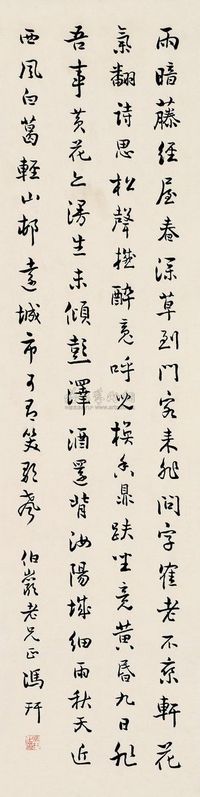 雨暗藤經屋春深草到門客来非問字寉老不乘軒花
氣翻詩思松聲撼醉魂呼兒換香鼎趺坐竟黃昏九日非
吾事黃花亦漫生未傾彭澤酒還背汝陽城細雨秋天近
西風白葛輕山邨遠城市可有笑歌聲 伯嚴老兄正 馮幵